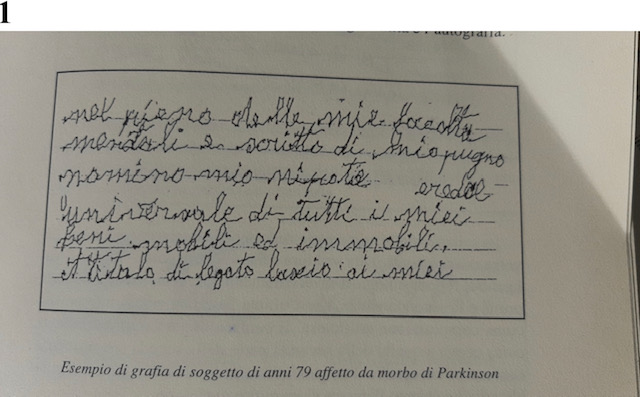 1
autografia.
nel pieno delle mie facolta
mentali e scritto di mio pugno
nomino mio nipote erede
universale di tutti i miei
beni mobili ed immobili.
A titolo di legato lascio ai miei
Esempio di grafia di soggetto di anni 79 affetto da morbo di Parkinson